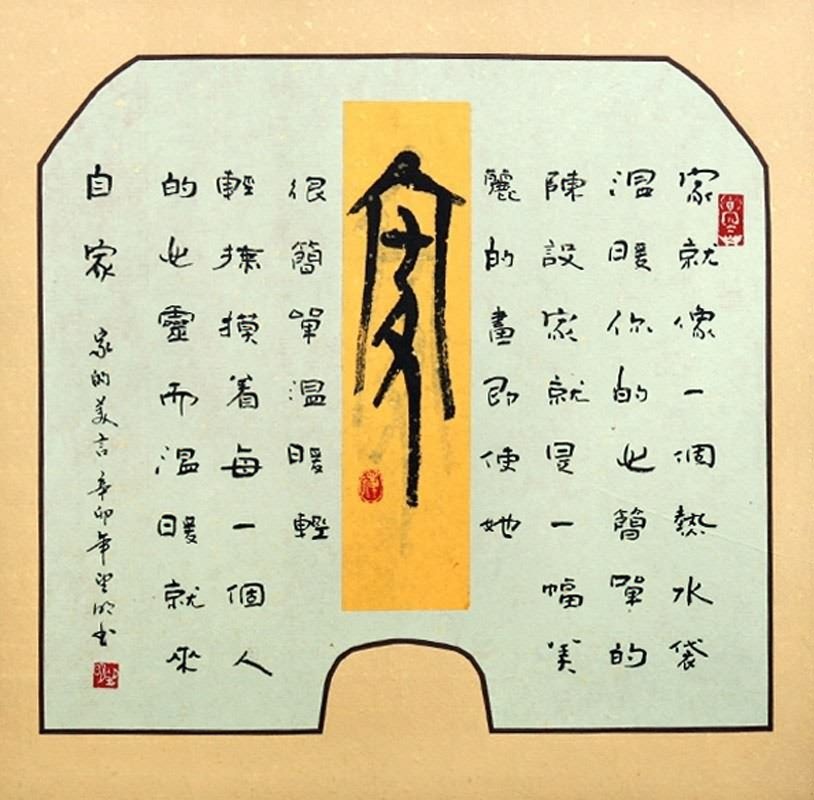 家就像一個熱水袋
溫暖你的心簡單的
陳設家就是一幅美
麗的畫即使她
家
很簡單溫暖輕
輕撫摸着每一個人
的心靈而溫暖就來
自家
家的美言辛卯年望明書